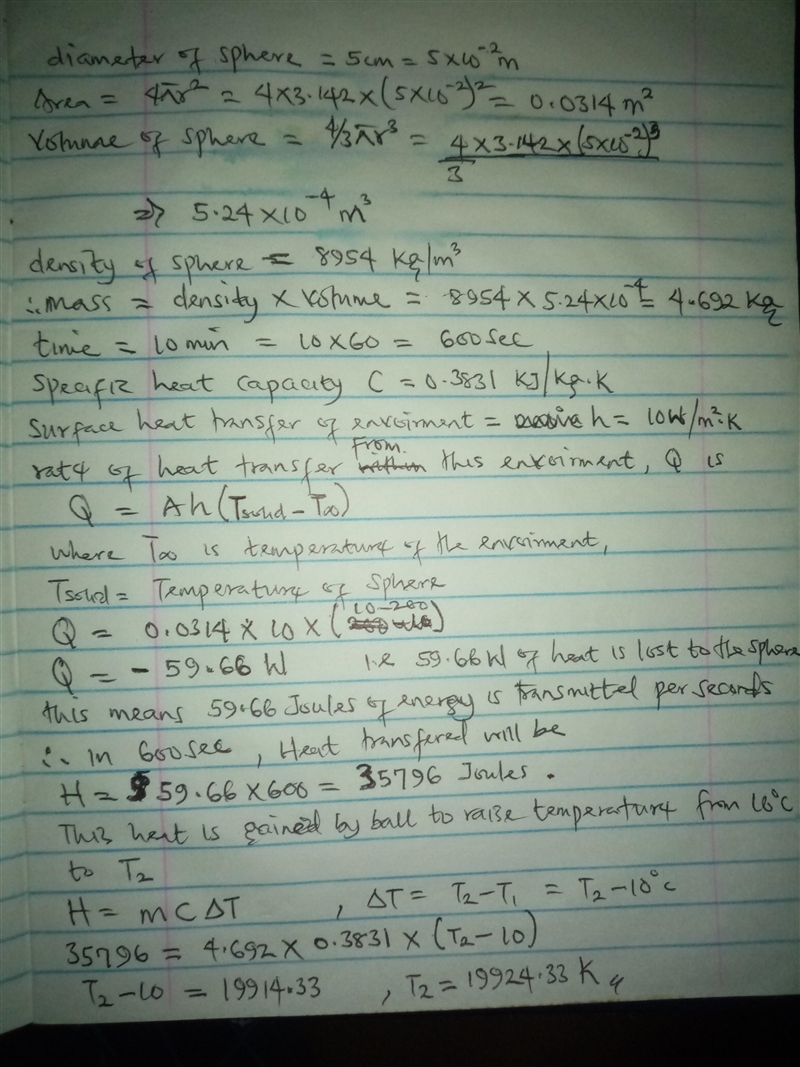 diameter of sphere = 5cm = 5×10⁻²m
Area = 4πr² = 4×3.142×(5×10⁻²)² = 0.0314 m²
Volume of sphere = 4/3πr³ = 4×3.142×(5×10⁻²)³
3
⇒ 5.24×10⁻⁴m³
density of sphere = 8954 Kg/m³
∴ mass = density × volume = 8954 × 5.24×10⁻⁴ = 4.692 Kg
time = 10 min = 10×60 = 600 Sec
Specific heat capacity C = 0.3831 KJ/Kg.K
Surface heat transfer of envoirment = h = 10W/m².K
rate of heat transfer From this envoirment, Q is
Q = Ah(Tsolid – T∞)
Where T∞ is temperature of the envoirment,
Tsolid = Temperature of Sphere
Q = 0.0314 × 10 × (10-200)
Q = - 59.66 W i.e 59.66W of heat is lost to the sphere
this means 59.66 Joules of energy is transmitted per seconds
∴ in 600sec, Heat transfered will be
H = 59.66×600 = 35796 Joules.
This heat is gained by ball to raise temperature from 10°C
to T₂
H = mCΔT , ΔT = T₂-T₁ = T₂-10°c
35796 = 4.692 × 0.3831 × (T₂-10)
T₂-10 = 19914.33 , T₂ = 19924.33 K